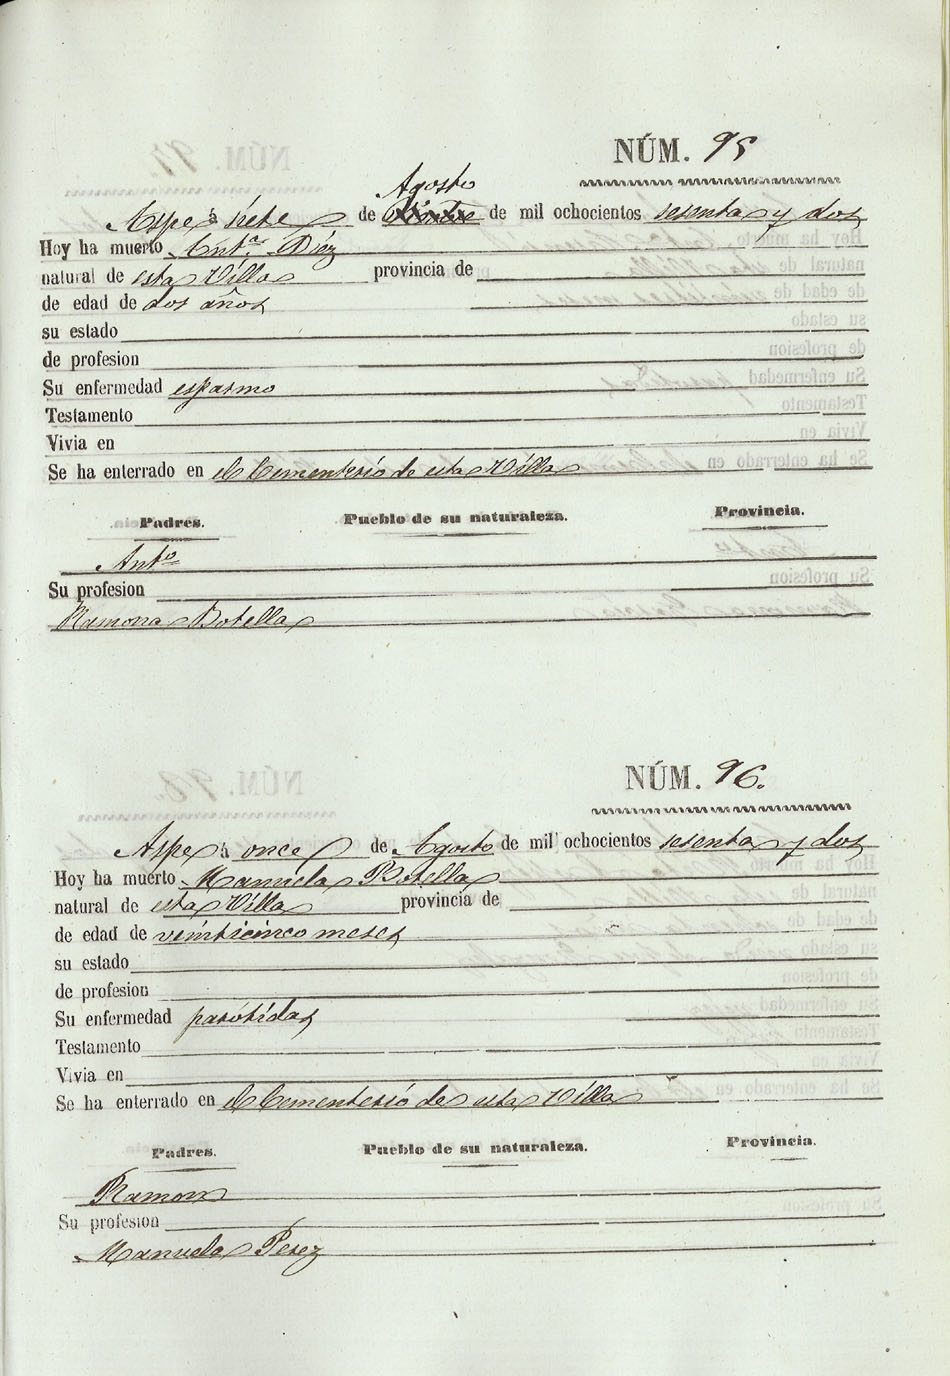 NÚM. 95
Agosto
Aspe á siete de de mil ochocientos sesenta y dos
Hoy ha muerto Antª Díez
natural de esta Villa provincia de
de edad de dos años
su estado
de profesion
Su enfermedad espasmo
Testamento
Vivia en
Se ha enterrado en el Cementerio de esta Villa
Padres. Pueblo de su naturaleza. Provincia.
Antº
Su profesion
Ramona Botella
NÚM. 96.
Aspe á once de Agosto de mil ochocientos sesenta y dos
Hoy ha muerto Manuela Botella
natural de esta Villa provincia de
de edad de veinticinco meses
su estado
de profesion
Su enfermedad parótidas
Testamento
Vivia en
Se ha enterrado en el Cementerio de esta Villa
Padres. Pueblo de su naturaleza. Provincia.
Ramon
Su profesion
Manuela Perez